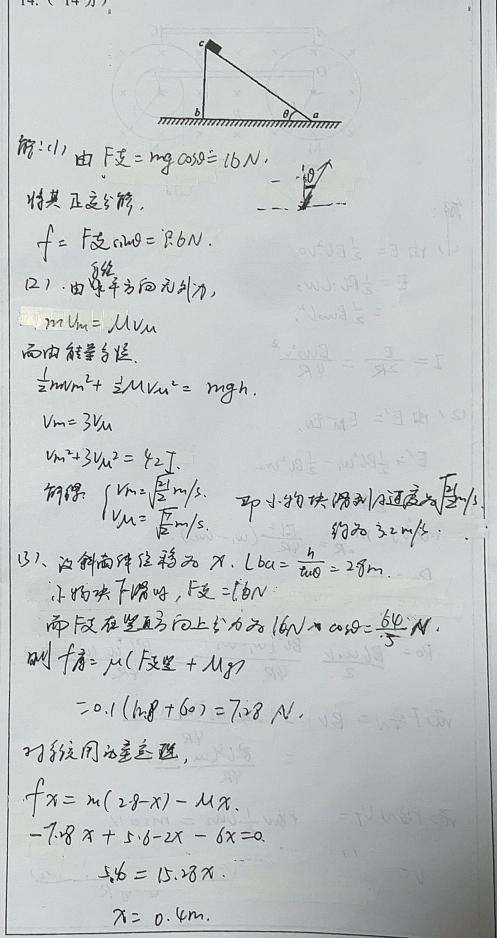 14. (14分)
c
b
θ
a
解:(1) 由F支=mgcosθ=16N.
θ
将其正交分解,
f=F支sinθ=9.6N.
(2).由水平方向无外力,
mVm=MVM
而由能量守恒.
½mVm²+½MVM²=mgh.
Vm=3VM
Vm²+3VM²=42J.
解得 {Vm=√(21/2)m/s. 即小物块滑到a速度为√(21/2)m/s.
VM=√(7/6)m/s. 约为3.2m/s.
(3)、设斜面体位移为x. Lba=h/tanθ=2.8m.
小物块下滑时,F支=16N
而F支在竖直方向上分力为16N×cosθ=64/5 N.
则f摩=μ(F支竖+Mg)
=0.1(12.8+60)=7.28 N.
对系统用动量定理,
fx=m(2.8-x)-Mx.
-7.28x+5.6-2x-6x=0.
5.6=15.28x.
x=0.4m.